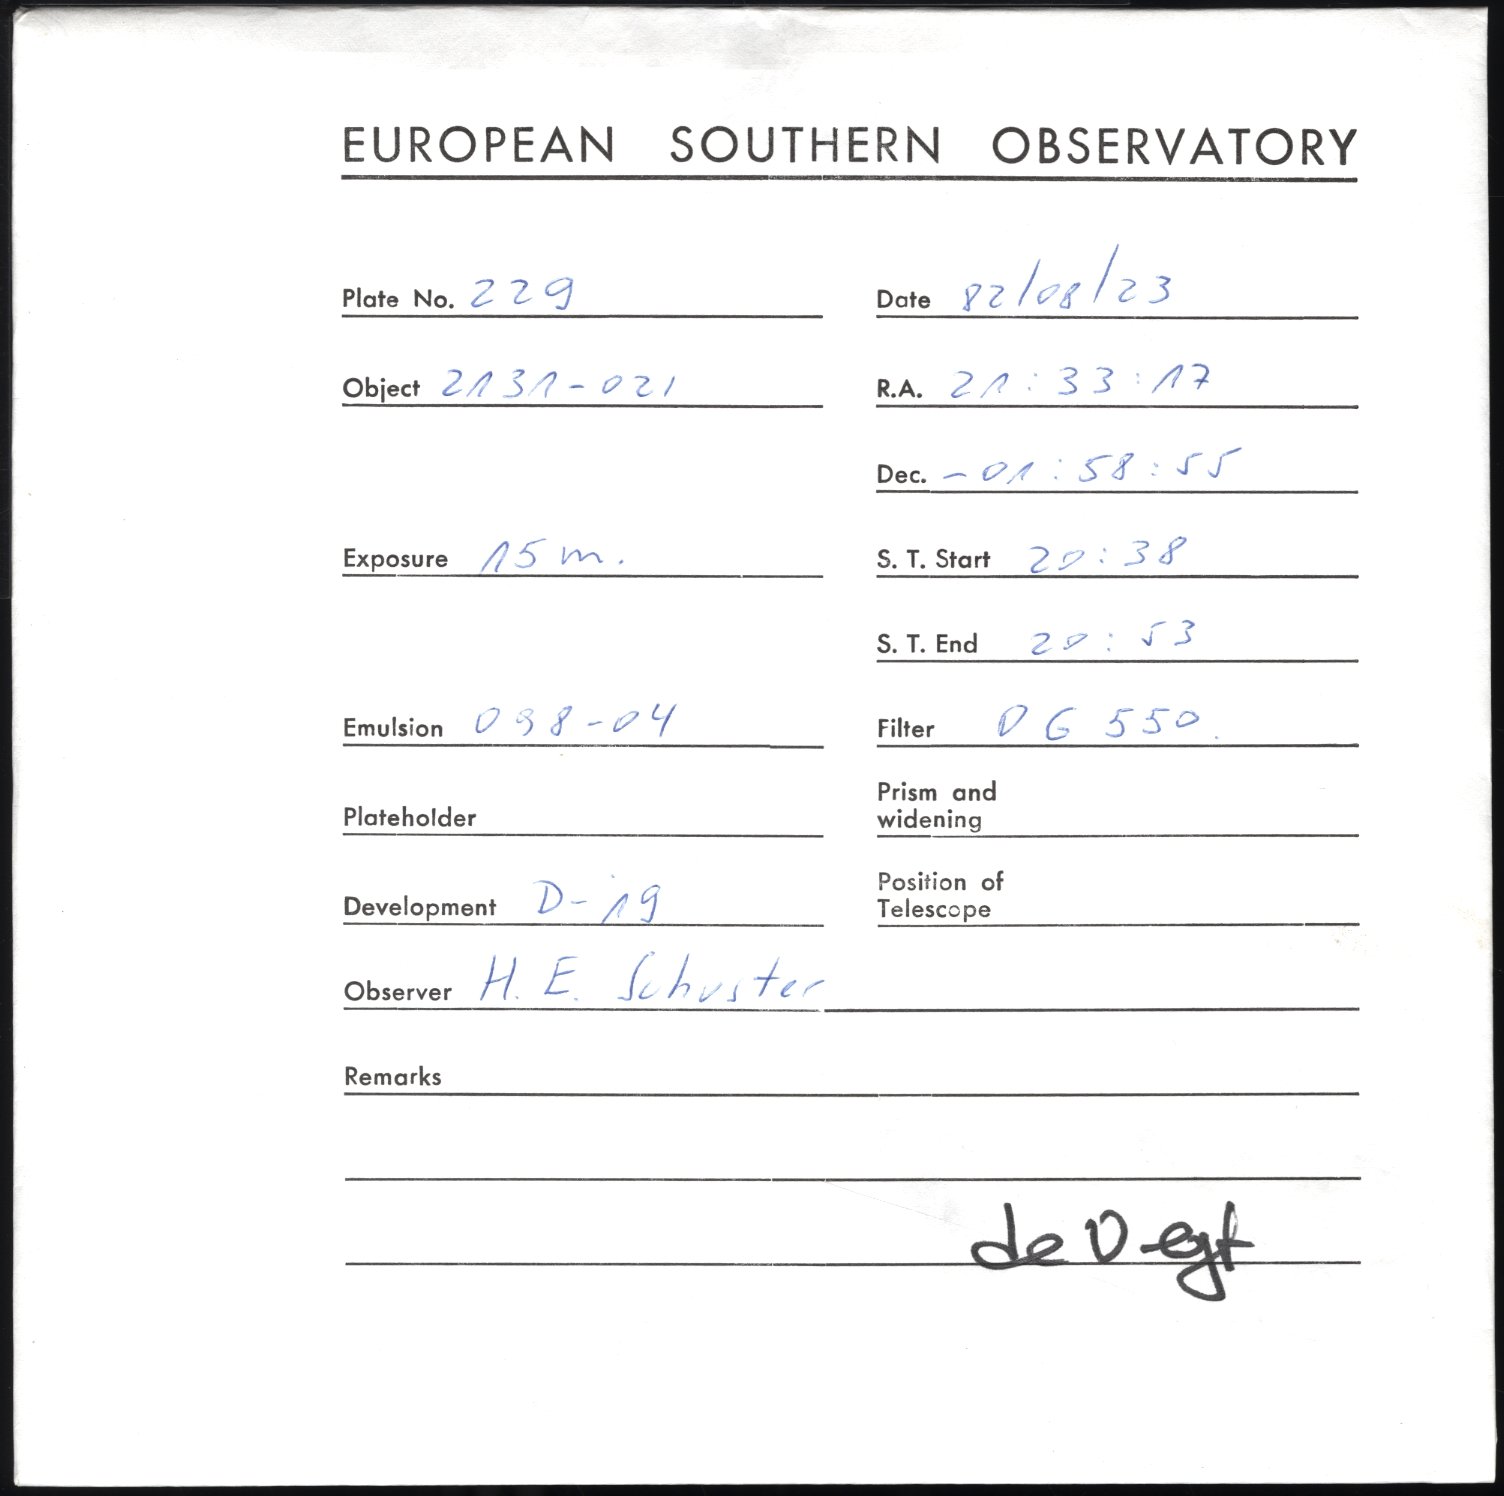 EUROPEAN SOUTHERN OBSERVATORY
Plate No. 229
Date 82/08/23
Object 2131-021
R.A. 21:33:17
Dec. -01:58:55
Exposure 15 m.
S. T. Start 20:38
S. T. End 20:53
Emulsion 098-04
Filter OG 550
Plateholder
Prism and
widening
Development D-19
Position of
Telescope
Observer H. E. Schuster
Remarks
de Vegt